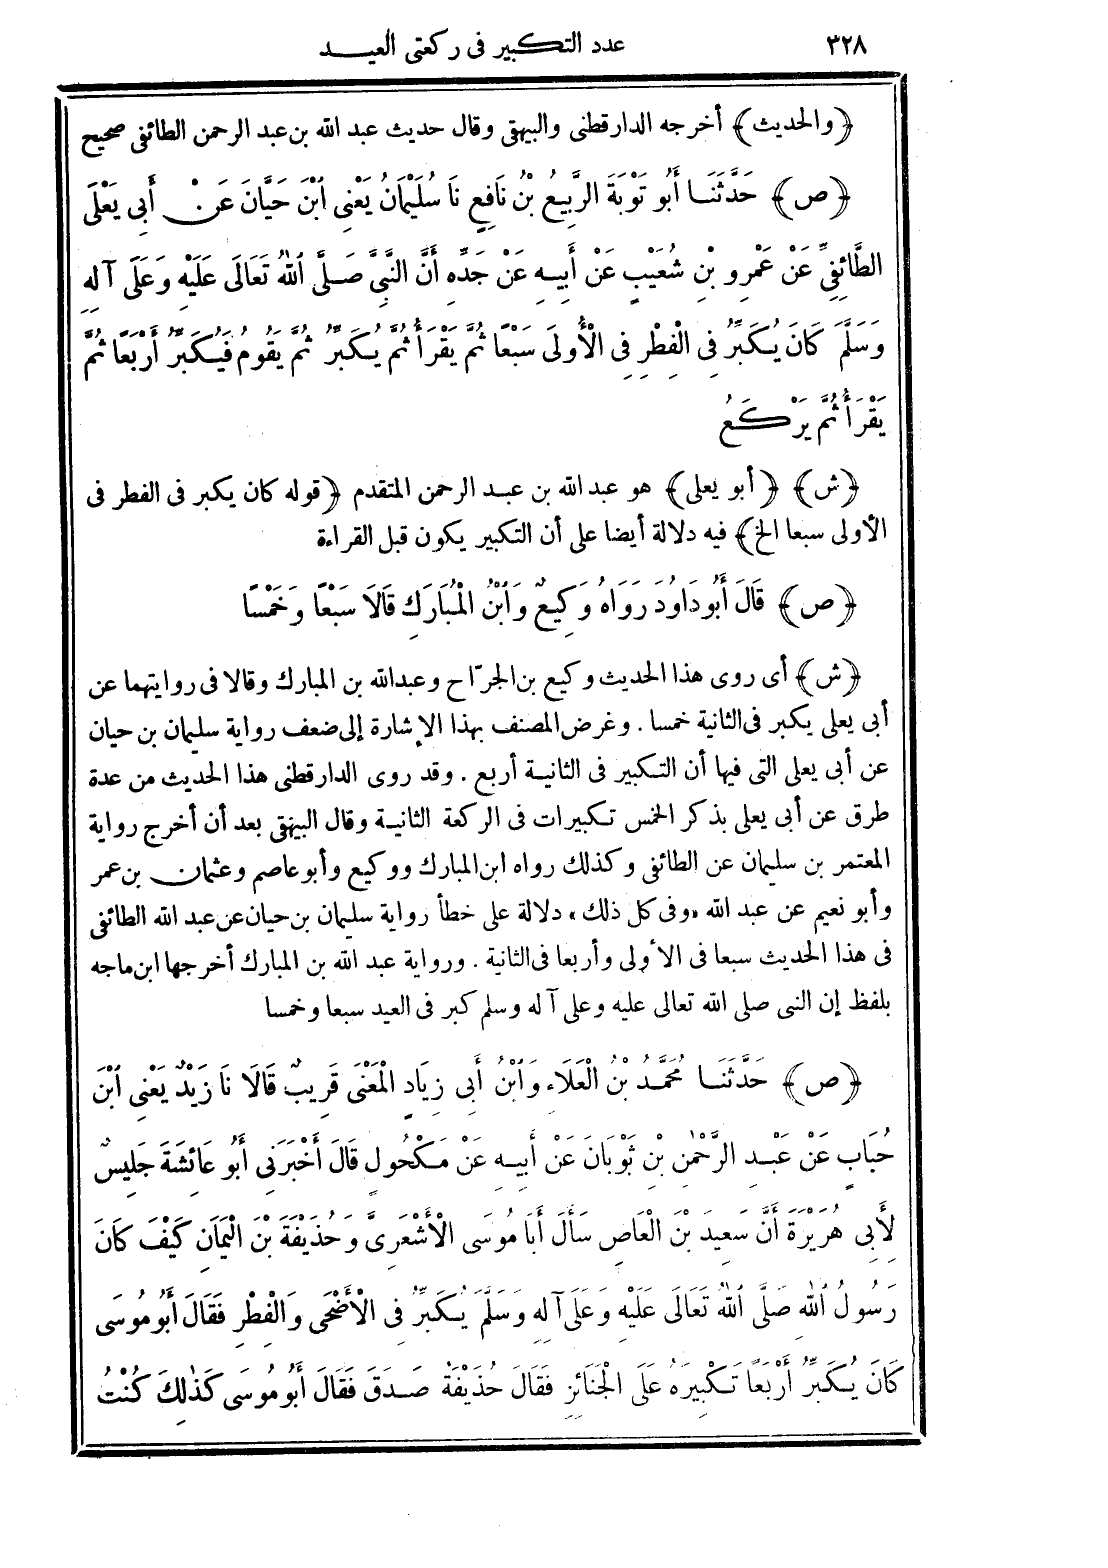 ٣٢٨ عدد التكبير فى ركعتى العيد
﴿والحديث﴾ أخرجه الدارقطنى والبيهقى وقال حديث عبد الله بن عبد الرحمن الطائفى صحيح
﴿ص﴾ حَدَّثَنَا أَبُو تَوْبَةَ الرَّبِيعُ بْنُ نَافِعٍ نَا سُلَيْمَانُ يَعْنِى ابْنَ حَيَّانَ عَنْ أَبِى يَعْلَى
الطَّائِفِىِّ عَنْ عَمْرِو بْنِ شُعَيْبٍ عَنْ أَبِيهِ عَنْ جَدِّهِ أَنَّ النَّبِىَّ صَلَّى اللهُ تَعَالَى عَلَيْهِ وَعَلَى آلِهِ
وَسَلَّمَ كَانَ يُكَبِّرُ فِى الْفِطْرِ فِى الْأُولَى سَبْعًا ثُمَّ يَقْرَأُ ثُمَّ يُكَبِّرُ ثُمَّ يَقُومُ فَيُكَبِّرُ أَرْبَعًا ثُمَّ
يَقْرَأُ ثُمَّ يَرْكَعُ
﴿ش﴾ ﴿أبو يعلى﴾ هو عبد الله بن عبد الرحمن المتقدم ﴿قوله كان يكبر فى الفطر فى
الأولى سبعا الخ﴾ فيه دلالة أيضا على أن التكبير يكون قبل القراءة
﴿ص﴾ قَالَ أَبُو دَاوُدَ رَوَاهُ وَكِيعٌ وَابْنُ الْمُبَارَكِ قَالَا سَبْعًا وَخَمْسًا
﴿ش﴾ أى روى هذا الحديث وكيع بن الجرّاح وعبدالله بن المبارك وقالا فى روايتهما عن
أبى يعلى يكبر فى الثانية خمسا . وغرض المصنف بهذا الإشارة إلى ضعف رواية سليمان بن حيان
عن أبى يعلى التى فيها أن التكبير فى الثانية أربع . وقد روى الدارقطنى هذا الحديث من عدة
طرق عن أبى يعلى بذكر الخمس تكبيرات فى الركعة الثانية وقال البيهقى بعد أن أخرج رواية
المعتمر بن سليمان عن الطائفى وكذلك رواه ابن المبارك ووكيع وأبو عاصم وعثمان بن عمر
وأبو نعيم عن عبد الله «وفى كل ذلك» دلالة على خطأ رواية سليمان بن حيان عن عبد الله الطائفى
فى هذا الحديث سبعا فى الأولى وأربعا فى الثانية . ورواية عبد الله بن المبارك أخرجها ابن ماجه
بلفظ إن النبى صلى الله تعالى عليه وعلى آله وسلم كبر فى العيد سبعا وخمسا
﴿ص﴾ حَدَّثَنَا مُحَمَّدُ بْنُ الْعَلَاءِ وَابْنُ أَبِى زِيَادٍ الْمَعْنَى قَرِيبٌ قَالَا نَا زَيْدٌ يَعْنِى ابْنَ
حُبَابٍ عَنْ عَبْدِ الرَّحْمٰنِ بْنِ ثَوْبَانَ عَنْ أَبِيهِ عَنْ مَكْحُولٍ قَالَ أَخْبَرَنِى أَبُو عَائِشَةَ جَلِيسٌ
لِأَبِى هُرَيْرَةَ أَنَّ سَعِيدَ بْنَ الْعَاصِ سَأَلَ أَبَا مُوسَى الْأَشْعَرِىَّ وَحُذَيْفَةَ بْنَ الْيَمَانِ كَيْفَ كَانَ
رَسُولُ اللهِ صَلَّى اللهُ تَعَالَى عَلَيْهِ وَعَلَى آلِهِ وَسَلَّمَ يُكَبِّرُ فِى الْأَضْحَى وَالْفِطْرِ فَقَالَ أَبُو مُوسَى
كَانَ يُكَبِّرُ أَرْبَعًا تَكْبِيرَهُ عَلَى الْجَنَائِزِ فَقَالَ حُذَيْفَةُ صَدَقَ فَقَالَ أَبُو مُوسَى كَذٰلِكَ كُنْتُ